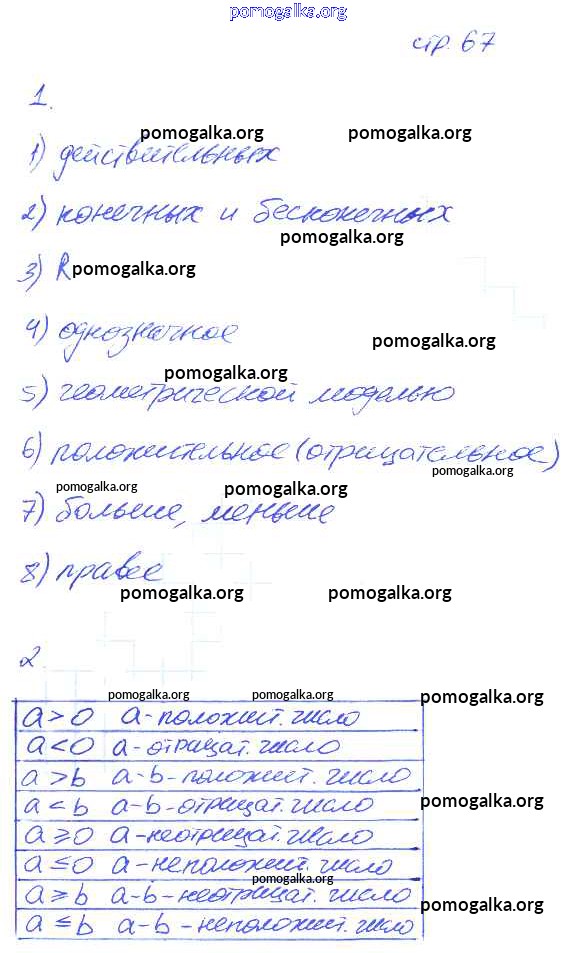 pomogalka.org
стр. 67
1.
pomogalka.org pomogalka.org
1) действительных
2) конечных и бесконечных
pomogalka.org
3) R pomogalka.org
4) однозначное
pomogalka.org
pomogalka.org
5) геометрической моделью
6) положительное (отрицательное)
pomogalka.org
pomogalka.org pomogalka.org
7) больше, меньше
8) правее
pomogalka.org pomogalka.org
2.
pomogalka.org pomogalka.org pomogalka.org
a > 0 a - положит. число
a < 0 a - отрицат. число
a > b a - b - положит. число
a < b a - b - отрицат. число pomogalka.org
a ⩾ 0 a - неотрицат. число
a ≤ 0 a - неположит. число
pomogalka.org
a ⩾ b a - b - неотрицат. число pomogalka.org
a ≤ b a - b - неположит. число